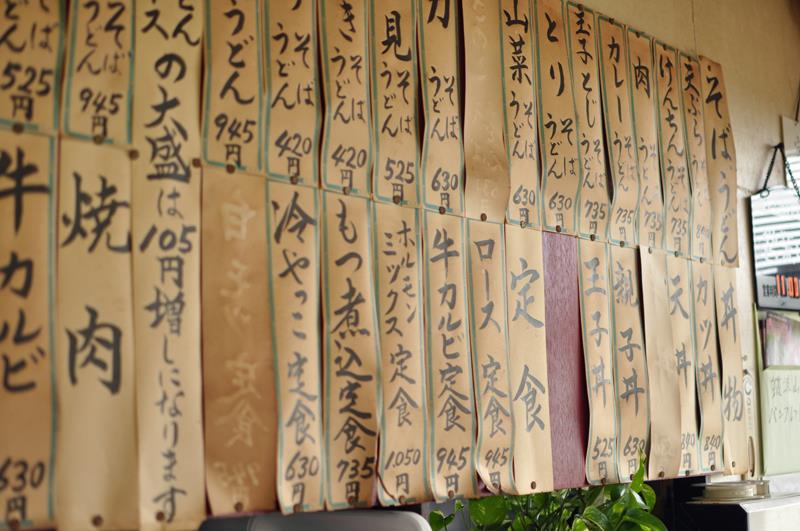 そばうどん
天ぷら そば
けんちん うどん 735円
肉 そばうどん 735円
カレー うどん 735円
玉子とじ そばうどん 735円
とり そばうどん 630円
山菜 そばうどん 630円
力 そばうどん 630円
見 そばうどん 525円
き そばうどん 420円
そばうどん 420円
うどん 945円
の大盛は105円増しになります
そばうどん 945円
そば 525円
丼物
カツ丼 840円
天丼 840円
親子丼 630円
玉子丼 525円
定食
ロース定食 945円
牛カルビ定食 945円
ホルモン
ミックス定食 1,050円
もつ煮込定食 735円
冷やっこ定食 630円
白モツ定食 945円
焼肉
牛カルビ 630円